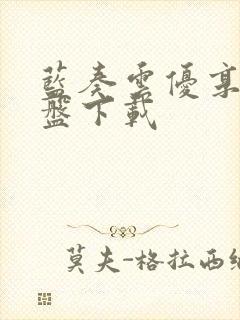 藍奏雲優享
盤下載
莫夫-格拉西緬